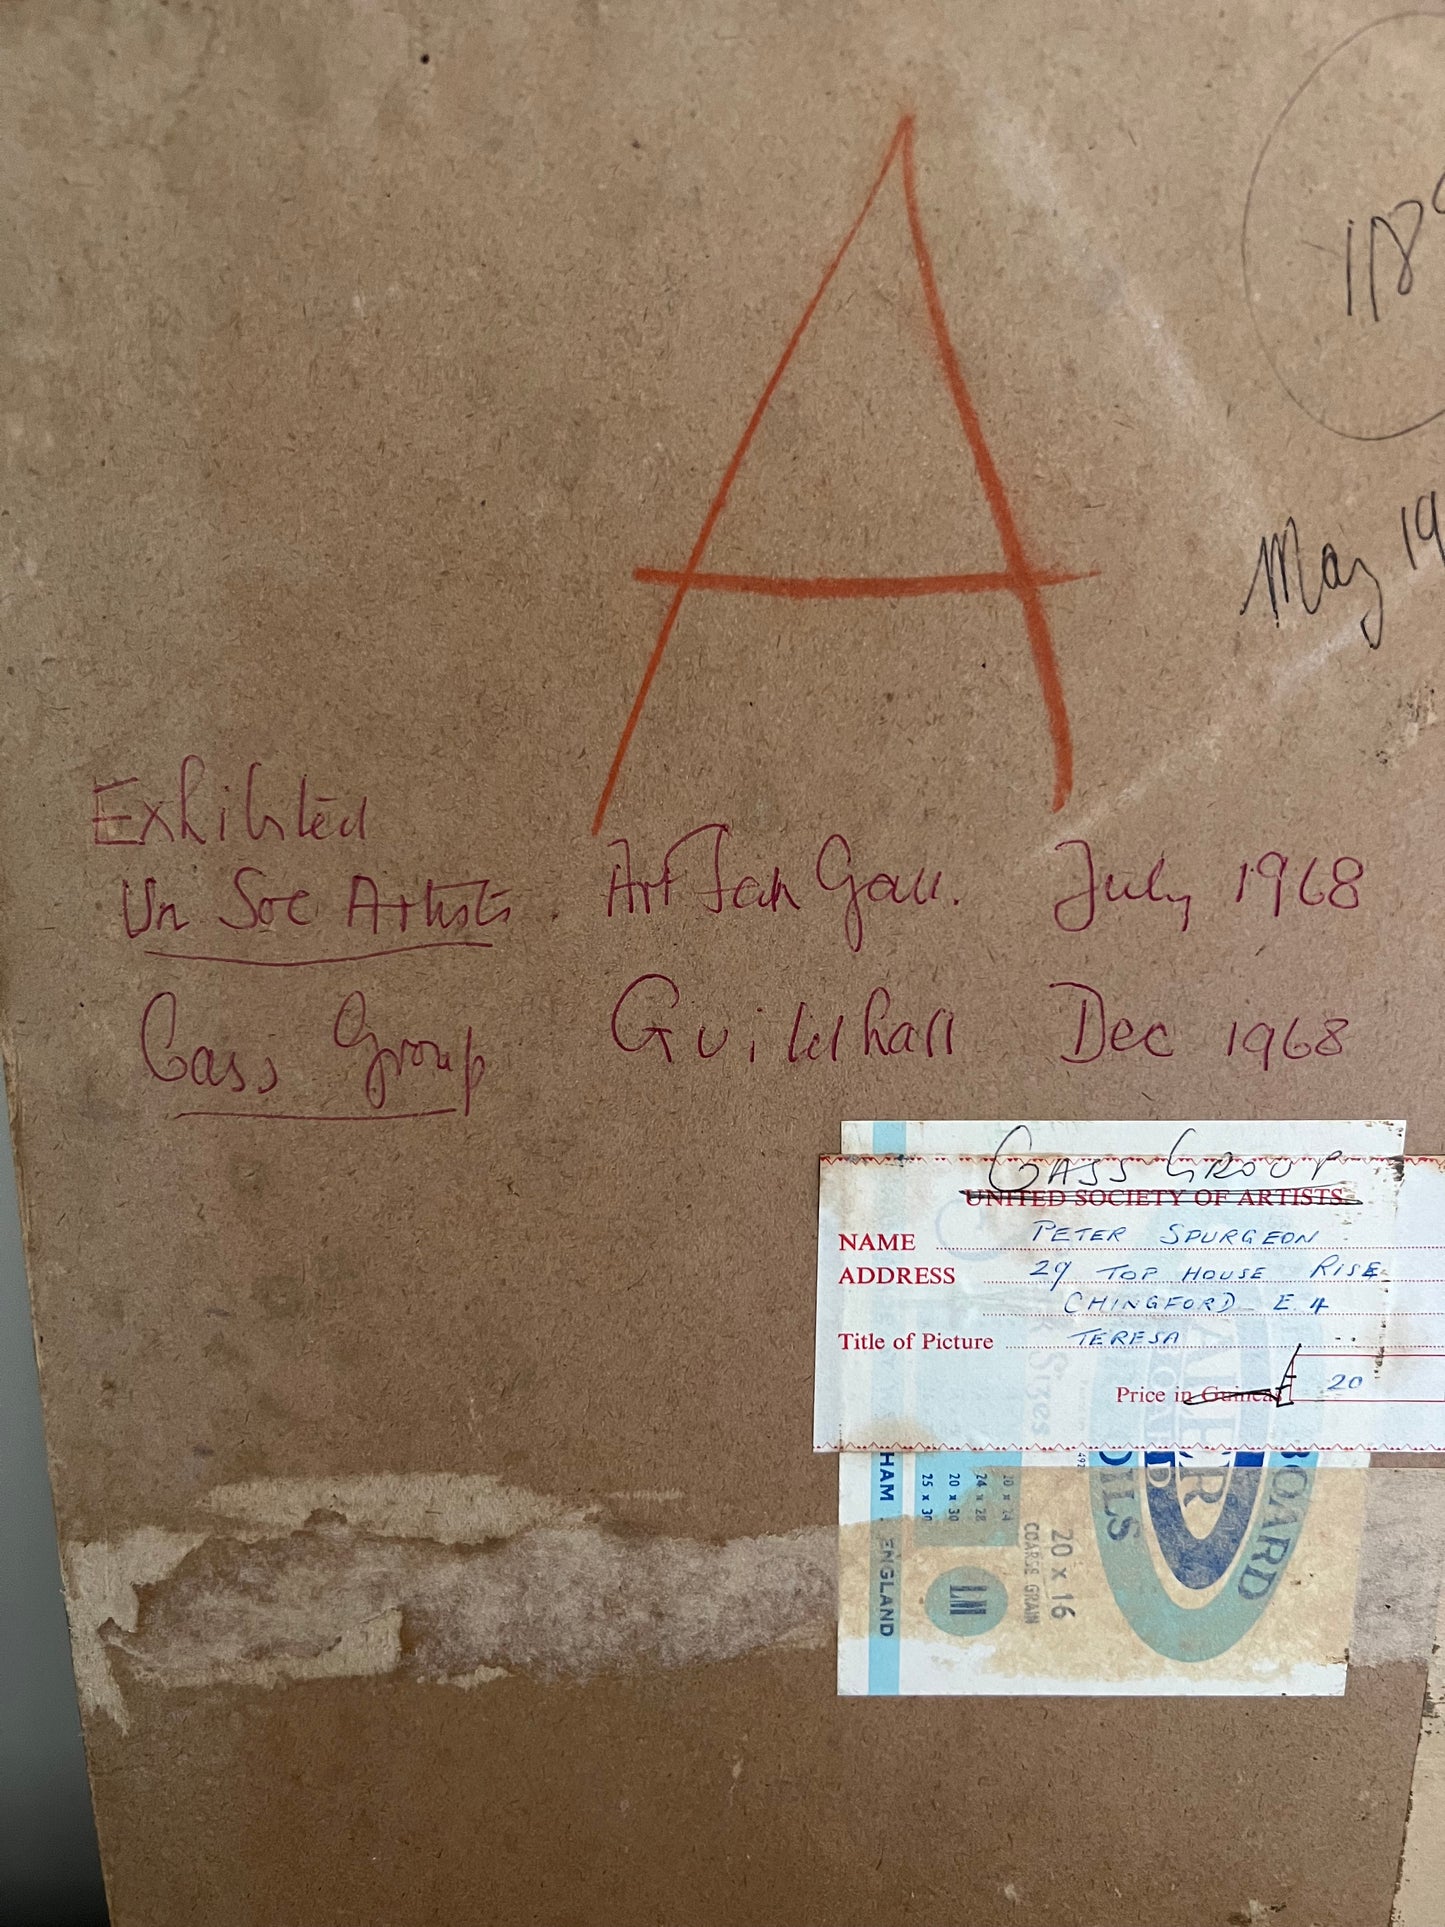 A
118
May 19
Exhibited
Un Soc Artists. Art Fed Gall. July 1968
Cass Group Guildhall Dec 1968
CASS GROUP
UNITED SOCIETY OF ARTISTS
NAME PETER SPURGEON
ADDRESS 29 TOP HOUSE RISE
CHINGFORD E.4
Title of Picture TERESA
Price in Guineas £ 20
HAM. ENGLAND
25 x 30
20 x 30
24 x 28
20 x 24
COARSE GRAIN
20 x 16
Sizes
BOARD
OILS